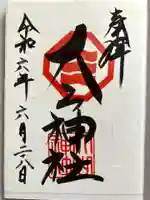 奉拝
大山神社
令和六年 六月二八日